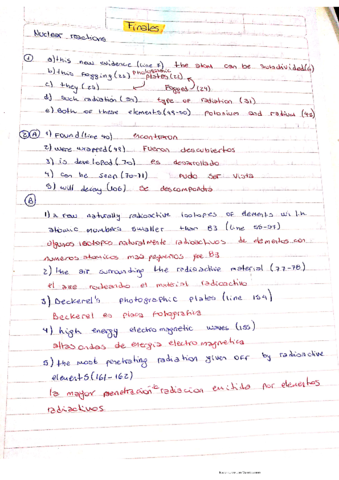 Finales
Nuclear reactions
① a) this new evidence (line 8) the atom can be subdivided(6)
b) this fogging (22) photographic plates (21)
c) they (25) Fogged (24)
d) such radiation (31) type of radiation (31)
e) Both of these elements (49-50) polonium and radium (48)
② Ⓐ 1) Found (line 40) encontraron
2) were wrapped (49) Fueron descubiertos
3) is developed (70) es desarollado
4) can be seen (70-71) pudo ser vista
5) will decay (106) Se descompondra
Ⓑ
1) A few naturally radioactive isotopes of elements with
atomic numbers smaller than 83 (line
algunos isotopos naturalmente radioactivos de elementos con
numeros atomicos mas pequeños que 83
2) the air surrounding the radioactive material (77-78)
el aire rodeando el material radioactivo
3) Beckerel's photographic plates (line 124)
Beckerel es placa fotografia
4) high energy electromagnetic waves (155)
altas ondas de energia electromagnetica
5) the most penetrating radiation given off by radioactive
elements (161-162)
la mayor penetración radiacion emitida por elementos
radiactivos